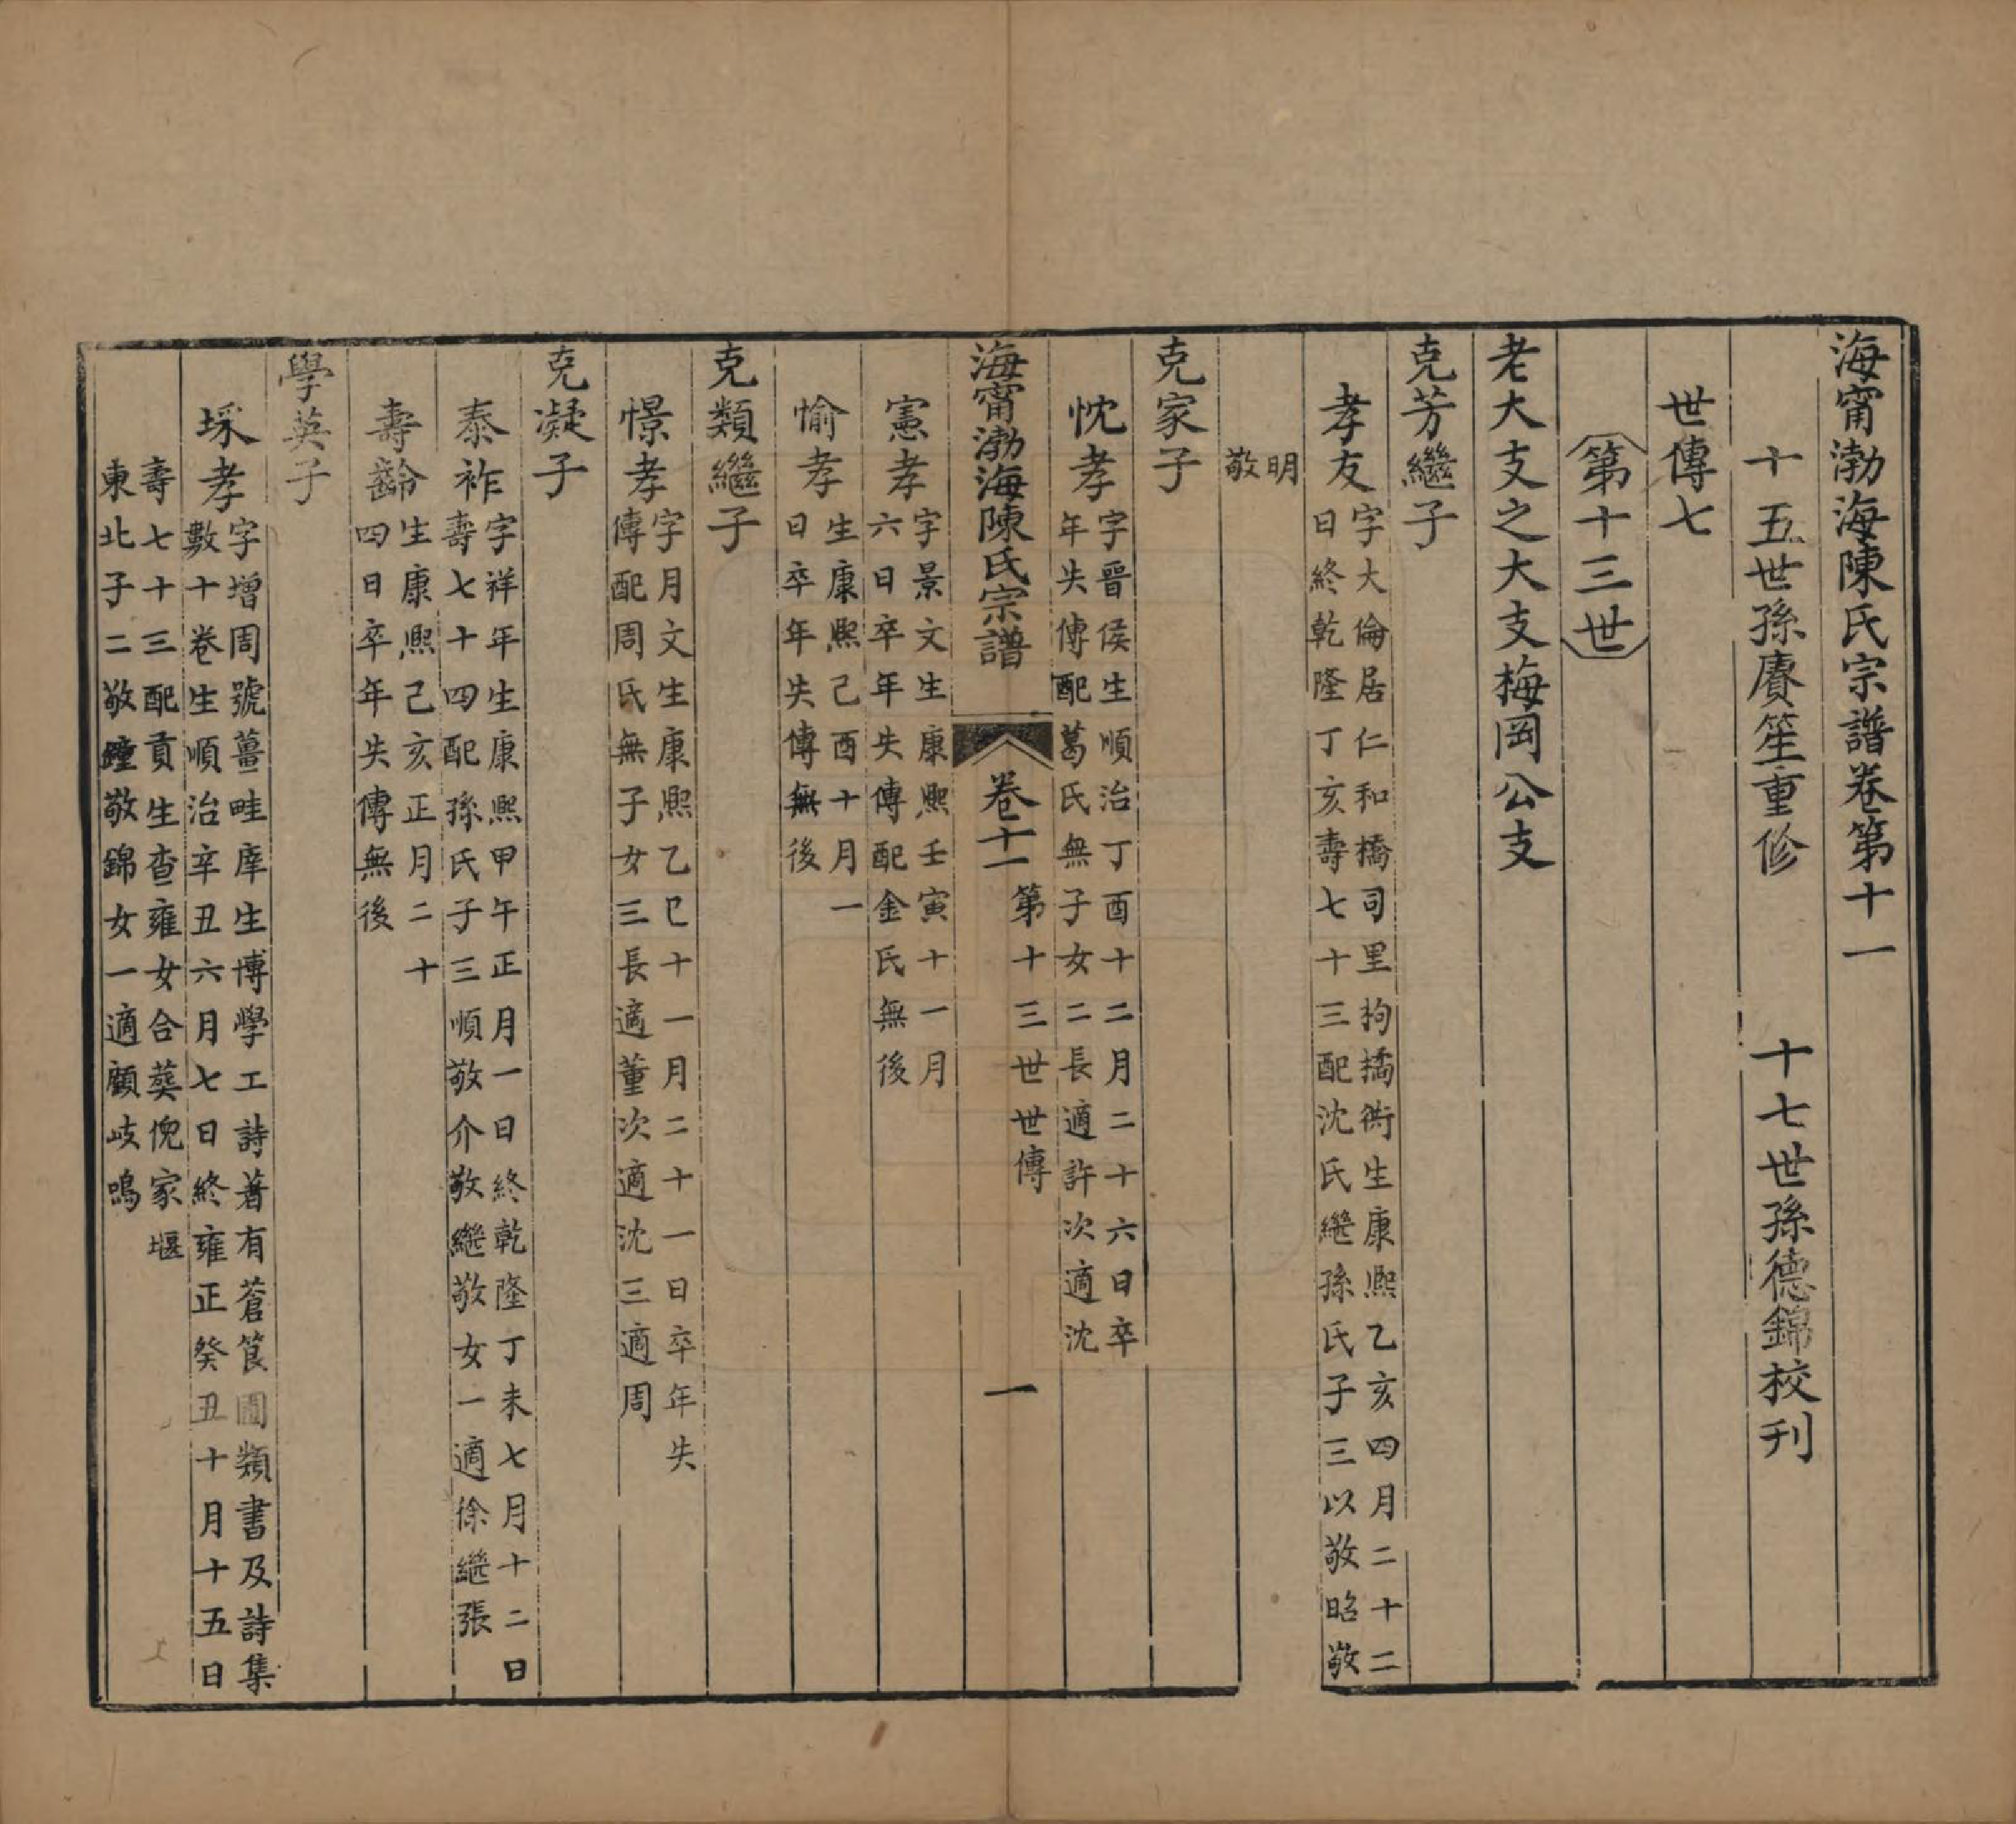 海甯渤海陳氏宗譜卷第十一
十五世孫賡笙重修　十七世孫德錦校刊
世傳七
第十三世
老大支之大支梅岡公支
克芳繼子
孝友字大倫居仁和橋司里拘橘衖生康熙乙亥四月二十二
日終乾隆丁亥壽七十三配沈氏繼孫氏子三以敬昭敬
明
敬
克家子
忱孝字晉侯生順治丁酉十二月二十六日卒
年失傳配葛氏無子女二長適許次適沈
海甯渤海陳氏宗譜　卷十一　第十三世世傳　一
憲孝字景文生康熙壬寅十一月
六日卒年失傳配金氏無後
愉孝生康熙己酉十月一
日卒年失傳無後
克類繼子
憬孝字月文生康熙乙巳十一月二十一日卒年失
傳配周氏無子女三長適董次適沈三適周
克凝子
泰祚字祥年生康熙甲午正月一日終乾隆丁未七月十二日
壽七十四配孫氏子三順敬介敬繼敬女一適徐繼張
壽齡生康熙己亥正月二十
四日卒年失傳無後
學英子
埰孝字增周號薑畦庠生博學工詩著有蒼筤圃類書及詩集
數十卷生順治辛丑六月七日終雍正癸丑十月十五日
壽七十三配貢生查雍女合葬倪家堰
東北子二敬鐘敬錦女一適顧岐鳴